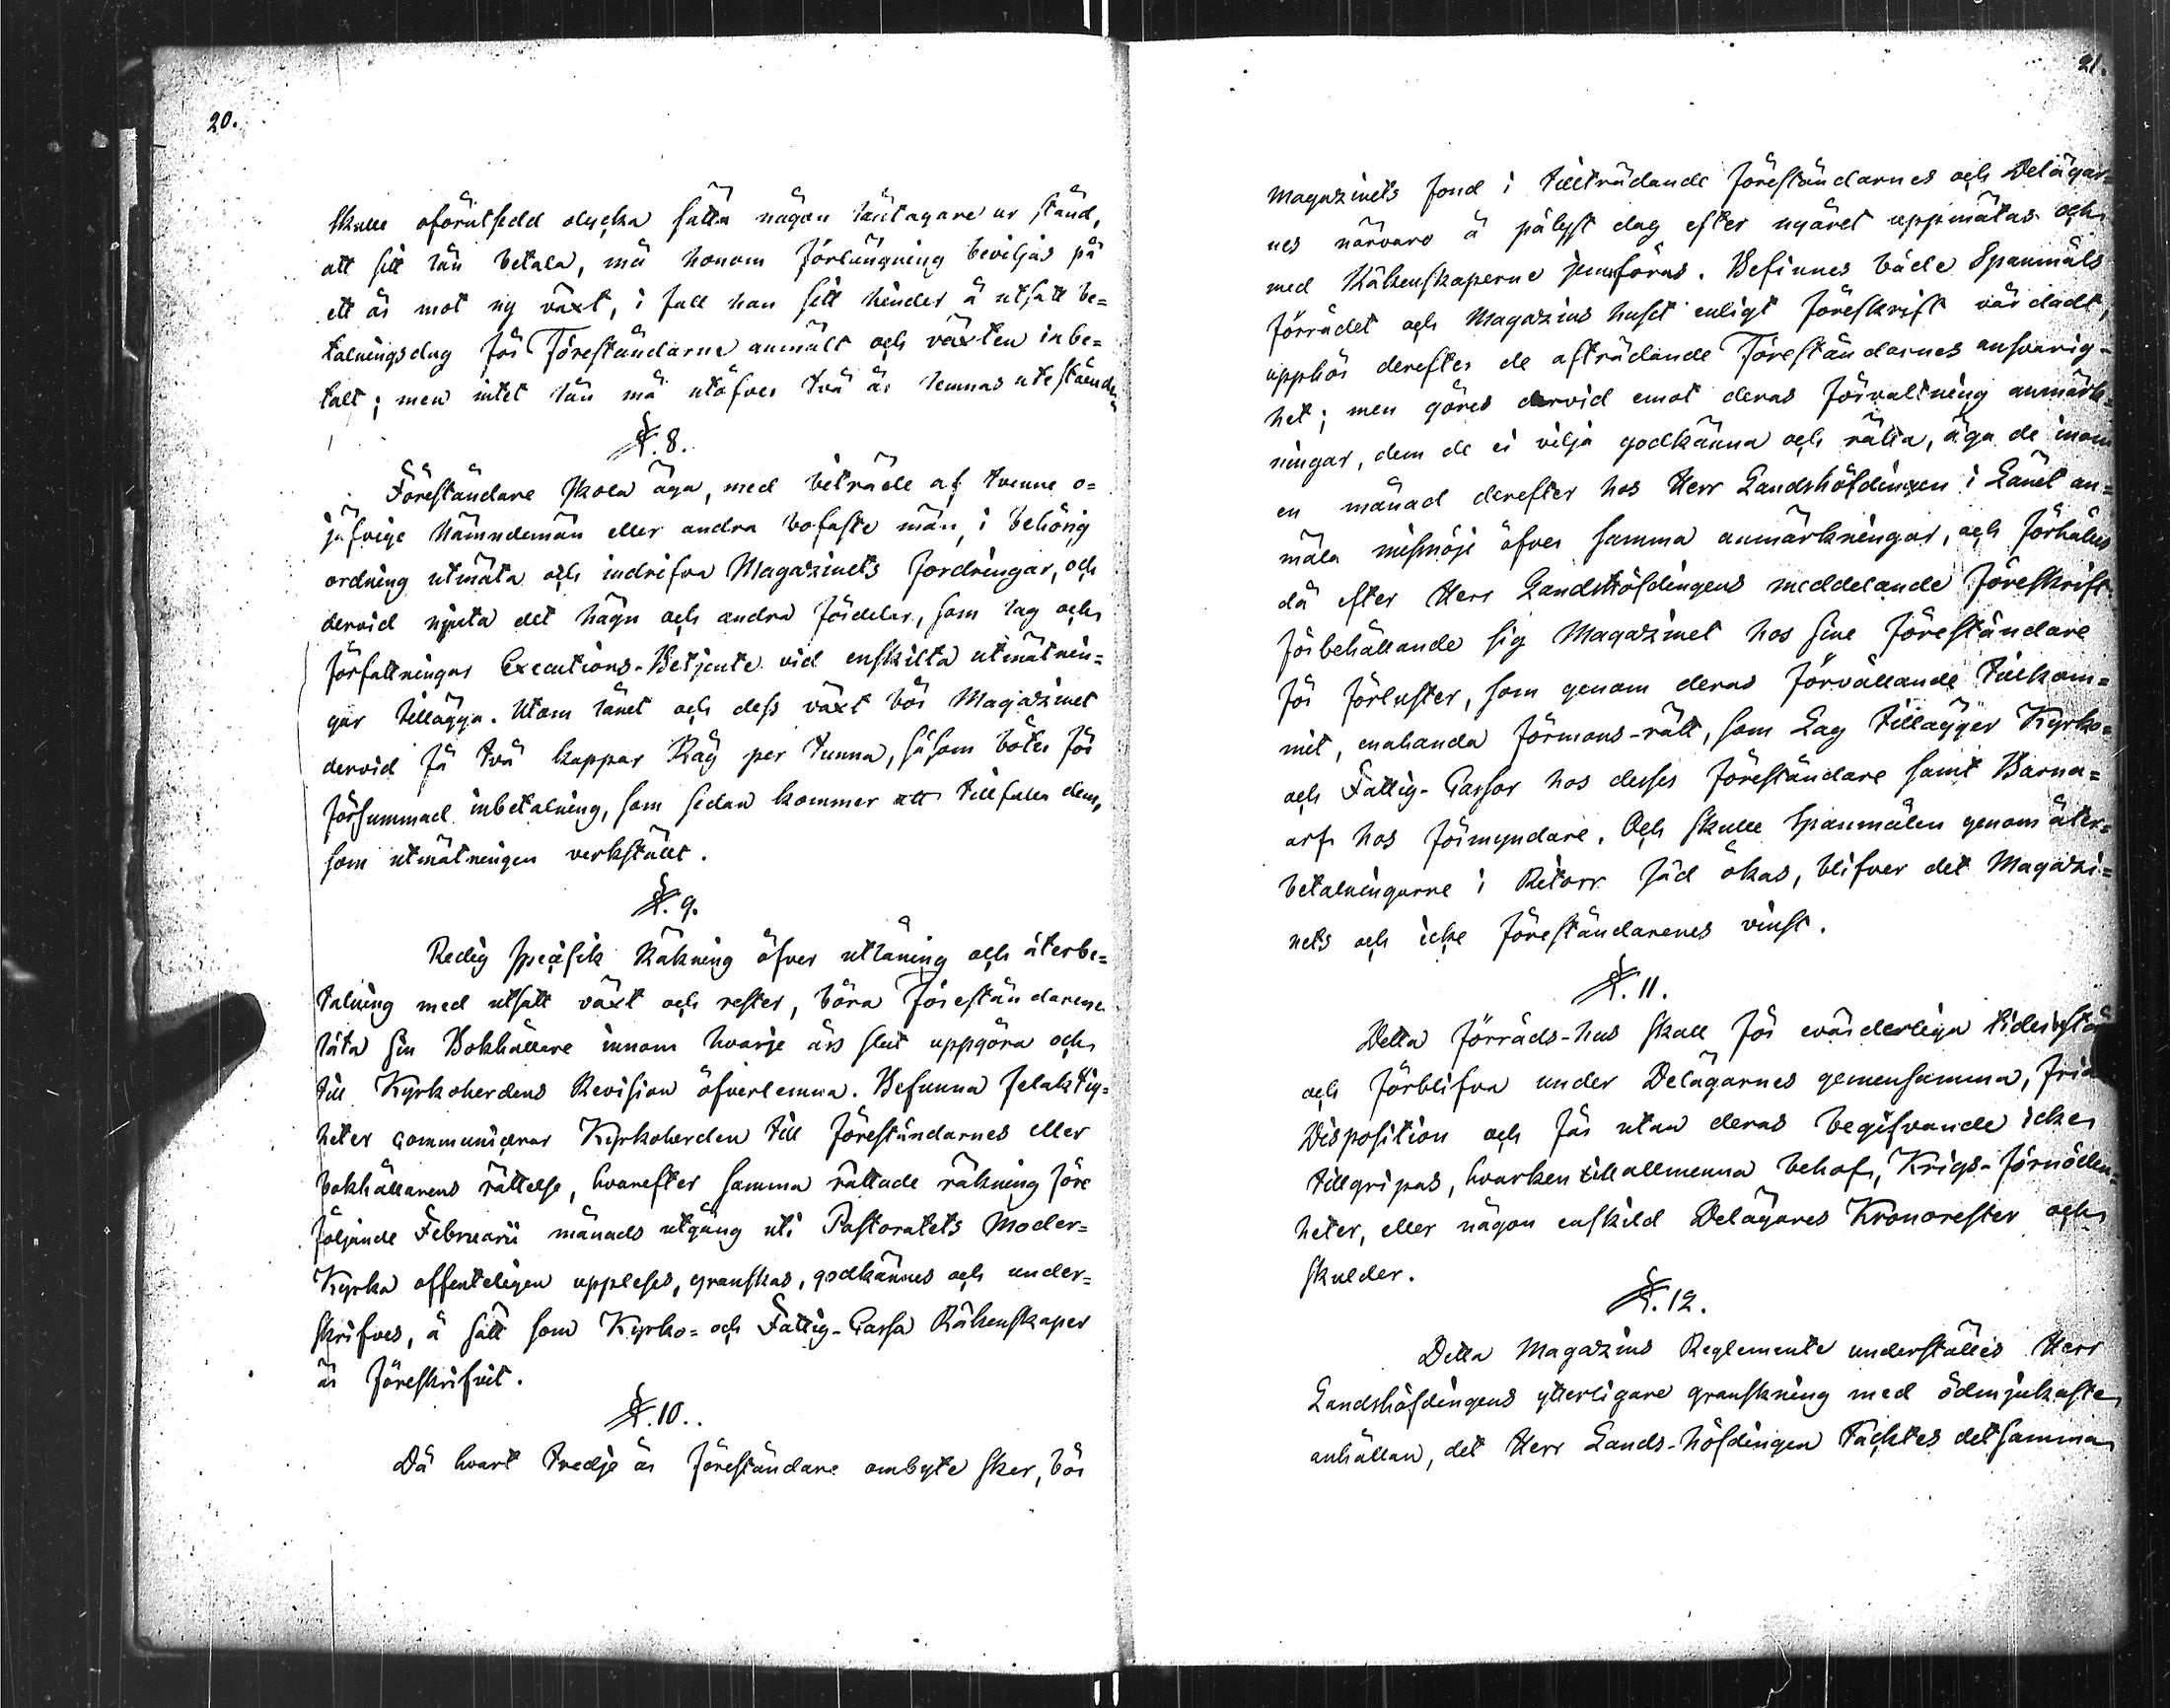 20.
skulle oförutsedd olycka sätta någon låntagare ur stånd,
att sitt lån betala, må honom förlängning beviljas på
ett år mot ny växt, i fall han sitt hinder å utsatt be=
talningsdag för Föreståndarne anmält och växten inbe=
talt; men intet lån må utöfver två år lemnas utestående
§. 8.
Föreståndare skola äga, med biträde af tvenne o=
jäfvige Nämndemän eller andra bofaste män, i behörig
ordning utmäta och indrifva Magazinets fordringar, och
dervid njuta det hägn och andra fördelar, som lag och
författningar Executions-Betjente vid enskilta utmätnin=
gar tillägga. Utom lånet och dess växt bör Magazinet
dervid få två kappar Råg per tunna, såsom böter för
försummad inbetalning, som sedan kommer att tillfalla dem,
som utmätningen verkställt.
§. 9.
Redig specifik Räkning öfver utlåning och återbe=
talning med utsatt växt och rester, böra Föreståndarene
låta sin Bokhållare innom hvarje års slut uppgöra och
till Kyrkoherdens Revision öfverlemna. Befunna felaktig=
heter communicerar Kyrkoherden till föreståndarnes eller
bokhållarens rättelse, hvarefter samma rättade räkning före
följande Februarii månads utgång uti Pastoratets Moder=
Kyrka offenteligen uppleses, granskas, godkännes och under=
skrifves, å sätt som Kyrko= och Fattig-Cassa Räkenskaper
är föreskrifvit.
§. 10.
Då hvart tredje år föreståndare ombyte sker, bör
21.
Magazinets fond i tillträdande föreståndarnes och Delägar=
nes närvaro å pålyst dag efter nyåret uppmätas och
med Räkenskaperne jemföras. Befinnes både Spanmåls
förrådet och Magazins huset enligt föreskrift vårdadt,
upphör derefter de afträdande Föreståndarnes ansvarig-
het; men göres dervid emot deras förvaltning anmärk=
ningar, dem de ei vilja godkänna och rätta, äga de inom
en månad derefter hos Herr Landshöfdingen i Länet an=
mäla missnöje öfver samma anmärkningar, och förhålles
då efter Herr Landshöfdingens meddelande föreskrift
förbehållande sig Magazinet hos sine föreståndare
för förluster, som genom deras förvållande tillkom=
mit, enahanda förmons-rätt, som Lag tillägger Kyrko=
och Fattig-Cassor hos desses föreståndare samt Barna=
arf hos förmyndare. Och skulle spanmålen genom åter=
betalningarne i Retorr säd ökas, blifver det Magazi=
nets och icke föreståndarenes vinst.
§. 11.
Detta förråds-hus skall för evärderliga tider stå
och förblifva under Delägarnes gemensamma, fria
Disposition och får utan deras begifvande icke
tillgripas, hvarken till allmenna behof, Krigs-förnöden=
heter, eller någon enskild Delägares Kronorester och
skulder.
§. 12.
Detta Magazins Reglemente underställes Herr
Landshöfdingens ytterligare granskning med ödmjukaste
anhållan, det Herr Lands-höfdingen täcktes detsamma